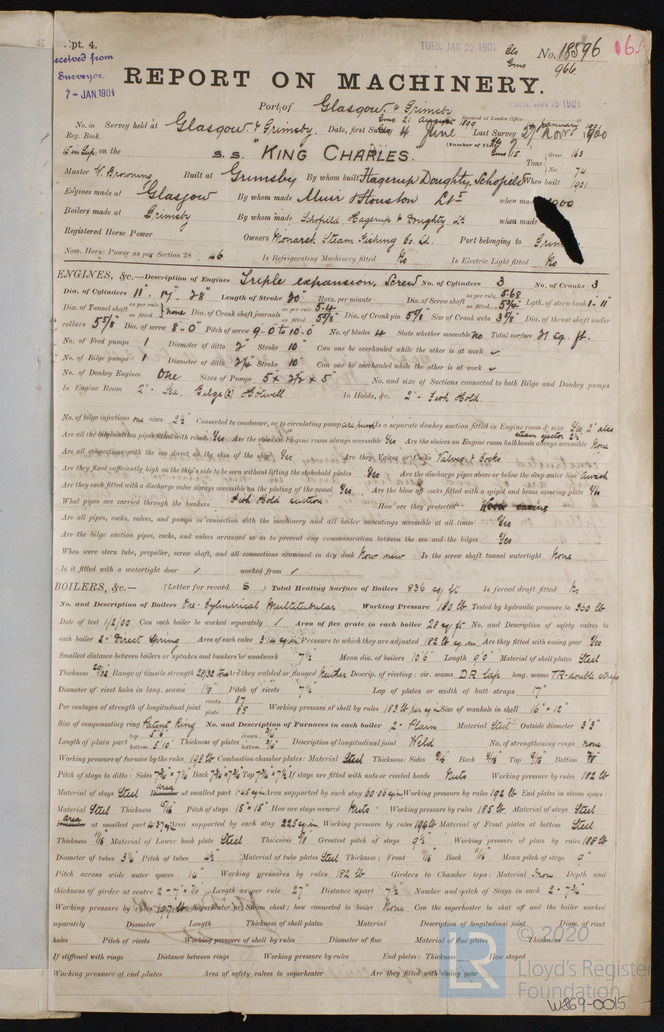 Rpt. 4.
TUES. JAN 22 1901
No. 18596
966
Received from
Surveyor.
7 - JAN. 1901
REPORT ON MACHINERY.
Port of Glasgow & Grimsby
Received at London Office TUES. JAN 15 1901
No. in Survey held at Glasgow & Grimsby. Date, first Survey 4 June Last Survey 27 Nov 1900
Reg. Book.
on the S.S. "KING CHARLES." (Number of Visits
Tons Gross 163 Net 74
Master W. Browning Built at Grimsby By whom built Hagerup Doughty, Schofield When built 1901
Engines made at Glasgow By whom made Muir & Houston Ltd when made 1900
Boilers made at Grimsby By whom made Schofield Hagerup & Doughty Ld when made
Registered Horse Power Owners Monarch Steam Fishing Co. Ld. Port belonging to Grimsby
Nom. Horse Power as per Section 28 46 Is Refrigerating Machinery fitted No Is Electric Light fitted No
ENGINES, &c.—Description of Engines Triple expansion, Screw No. of Cylinders 3 No. of Cranks 3
Dia. of Cylinders 11" . 17" . 28" Length of Stroke 20" Revs. per minute Dia. of Screw shaft as per rule 5.68 as fitted 5 3/4" Lgth. of stern bush 1 - 11"
Dia. of Tunnel shaft as per rule as fitted none Dia. of Crank shaft journals as per rule 5.4 as fitted 5 5/8" Dia. of Crank pin 5 5/8 Size of Crank webs 3 5/8" Dia. of thrust shaft under
collars 5 5/8" Dia. of screw 8 - 0" Pitch of screw 9-0 to 10-0" No. of blades 4 State whether moveable No Total surface 21 sq. ft.
No. of Feed pumps 1 Diameter of ditto 2" Stroke 10" Can one be overhauled while the other is at work ✓
No. of Bilge pumps 1 Diameter of ditto 2 1/4" Stroke 10" Can one be overhauled while the other is at work ✓
No. of Donkey Engines One Sizes of Pumps 5 x 3 1/2 x 5" No. and size of Suctions connected to both Bilge and Donkey pumps
In Engine Room 2 - Sea, Bilge & Hotwell. In Holds, &c. 2" - Fish Hold.
No. of bilge injections one sizes 2 1/2 Connected to condenser, or to circulating pump air pump Is a separate donkey suction fitted in Engine room & size Yes, 2" also steam ejector 2 1/2
Are all the bilge suction pipes fitted with roses Yes Are the roses in Engine room always accessible Yes Are the sluices on Engine room bulkheads always accessible None
Are all connections with the sea direct on the skin of the ship Yes Are they Valves or Cocks Valves & Cocks
Are they fixed sufficiently high on the ship's side to be seen without lifting the stokehold plates Yes Are the discharge pipes above or below the deep water line Awash
Are they each fitted with a discharge valve always accessible on the plating of the vessel Yes Are the blow off cocks fitted with a spigot and brass covering plate Yes
What pipes are carried through the bunkers Fish Hold suction How are they protected Wood casing
Are all pipes, cocks, valves, and pumps in connection with the machinery and all boiler mountings accessible at all times Yes
Are the bilge suction pipes, cocks, and valves arranged so as to prevent any communication between the sea and the bilges Yes
When were stern tube, propeller, screw shaft, and all connections examined in dry dock Now new Is the screw shaft tunnel watertight None
Is it fitted with a watertight door ✓ worked from ✓
BOILERS, &c.— (Letter for record S) Total Heating Surface of Boilers 836 sq ft Is forced draft fitted No
No. and Description of Boilers One - Cylindrical Multitubular Working Pressure 180 lb Tested by hydraulic pressure to 360 lb
Date of test 1/2/00 Can each boiler be worked separately ✓ Area of fire grate in each boiler 28 sq ft No. and Description of safety valves to
each boiler 2 - Direct Spring Area of each valve Pressure to which they are adjusted 182 lb sq in Are they fitted with easing gear Yes
Smallest distance between boilers or uptakes and bunkers or woodwork 7 1/2 Mean dia. of boilers 10'6" Length 9'0" Material of shell plates Steel
Thickness 29/32 Range of tensile strength 28/32 tons Are they welded or flanged Neither Descrip. of riveting: cir. seams D R Lap long. seams TR-double straps
Diameter of rivet holes in long. seams Pitch of rivets 7 1/4" Lap of plates or width of butt straps 17"
Per centages of strength of longitudinal joint rivets 87 plate 85 Working pressure of shell by rules 183 lb per sq in Size of manhole in shell 16" x 12"
Size of compensating ring Patent Ring No. and Description of Furnaces in each boiler 2 - Plain Material Steel Outside diameter 3'3"
Length of plain part top 5'6" bottom 5'10" Thickness of plates Description of longitudinal joint Weld No. of strengthening rings none
Working pressure of furnace by the rules 198 lb Combustion chamber plates: Material Steel Thickness: Sides 9/16 Back 9/16 Top 9/16 Bottom
Pitch of stays to ditto: Sides 7 3/4 x 7 3/4 Back 7 3/4 x 7 3/4 Top 7 3/4 x 7 1/2 If stays are fitted with nuts or riveted heads Nuts Working pressure by rules 182 lb
Material of stays Steel area at smallest part 1.45 sq in Area supported by each stay Working pressure by rules 192 lb End plates in steam space:
Material Steel Thickness Pitch of stays 15" x 15" How are stays secured Nuts Working pressure by rules 185 lb Material of stays Steel
area at smallest part Area supported by each stay 225 sq in Working pressure by rules Material of Front plates at bottom Steel
Thickness 11/16 Material of Lower back plate Steel Thickness Greatest pitch of stays 9 1/2 Working pressure of plate by rules 188 lb
Diameter of tubes 3 1/4" Pitch of tubes 4 1/2 Material of tube plates Steel Thickness: Front 11/16 Back 11/16 Mean pitch of stays 9"
Pitch across wide water spaces 14" Working pressures by rules 182 lb Girders to Chamber tops: Material Iron Depth and
thickness of girder at centre Length as per rule 27" Distance apart 7 1/2 Number and pitch of Stays in each 2 - 7 3/4"
Working pressure by rules 197 lb Superheater or Steam chest; how connected to boiler None Can the superheater be shut off and the boiler worked
separately Diameter Length Thickness of shell plates Material Description of longitudinal joint Diam. of rivet
holes Pitch of rivets Working pressure of shell by rules Diameter of flue Material of flue plates Thickness
If stiffened with rings Distance between rings Working pressure by rules End plates: Thickness How stayed
Working pressure of end plates Area of safety valves to superheater Are they fitted with easing gear
© 2020
LR
Lloyd's Register
Foundation
W869-0015